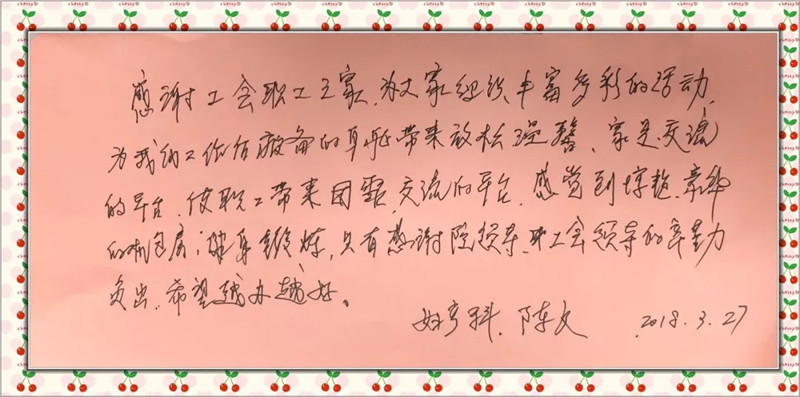 感谢工会职工之家,为大家组织丰富多彩的活动,
为我们工作后疲备的身躯带来放松温馨、家是交流
的平台,使职工带来团聚,交流的平台,感觉到
的氛围;健身锻炼,只有感谢院领导、职工会领导的辛勤
负出,希望越办越好。
妇产科,陈文 2018.3.27
cherry